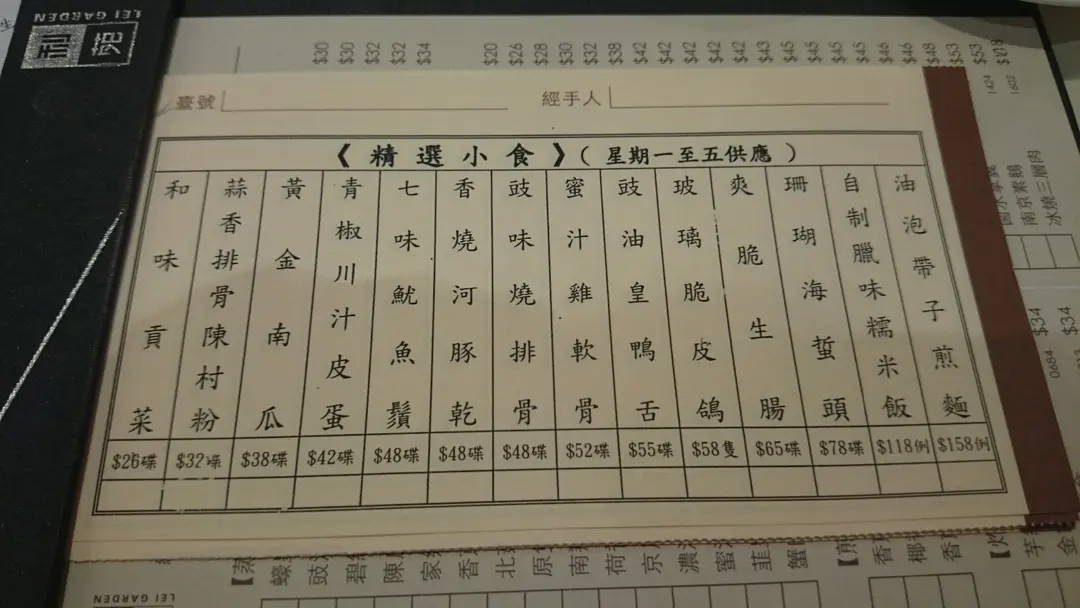 LEI GARDEN
利苑
$30
$30
$32
$32
$34
$20
$26
$28
$30
$32
$38
$42
$42
$42
$42
$42
$43
$45
$45
$45
$46
$46
$48
$53
$53
臺號
經手人
《精選小食》(星期一至五供應)
和味貢菜
蒜香排骨陳村粉
黃金南瓜
青椒川汁皮蛋
七味魷魚鬚
香燒河豚乾
豉味燒排骨
蜜汁雞軟骨
豉油皇鴨舌
玻璃脆皮鴿
爽脆生腸
珊瑚海蜇頭
自制臘味糯米飯
油泡帶子煎麵
$26碟
$32碟
$38碟
$42碟
$48碟
$48碟
$48碟
$52碟
$55碟
$58隻
$65碟
$78碟
$118例
$158例
1424
1602
南京素鵝
冰燒三層肉
0684
$34
$34
【蒸
蠔
豉
碧
陳
家
香
北
原
南
荷
京
濃
蜜
韮
蟹
【煎
香
椰
香
芋
金
LEI GARDEN